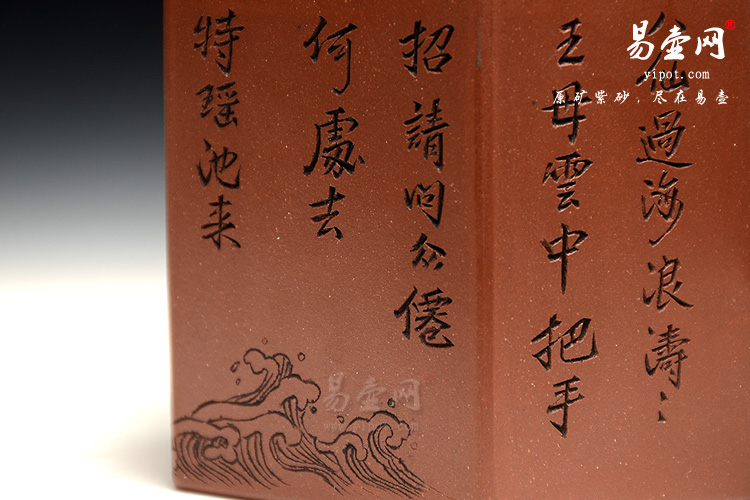 八仙過海浪濤〻
王母雲中把手
招請问众僊
何處去
特瑶池来
易壶网®
yipot.com
原矿紫砂，尽在易壶
易壶网